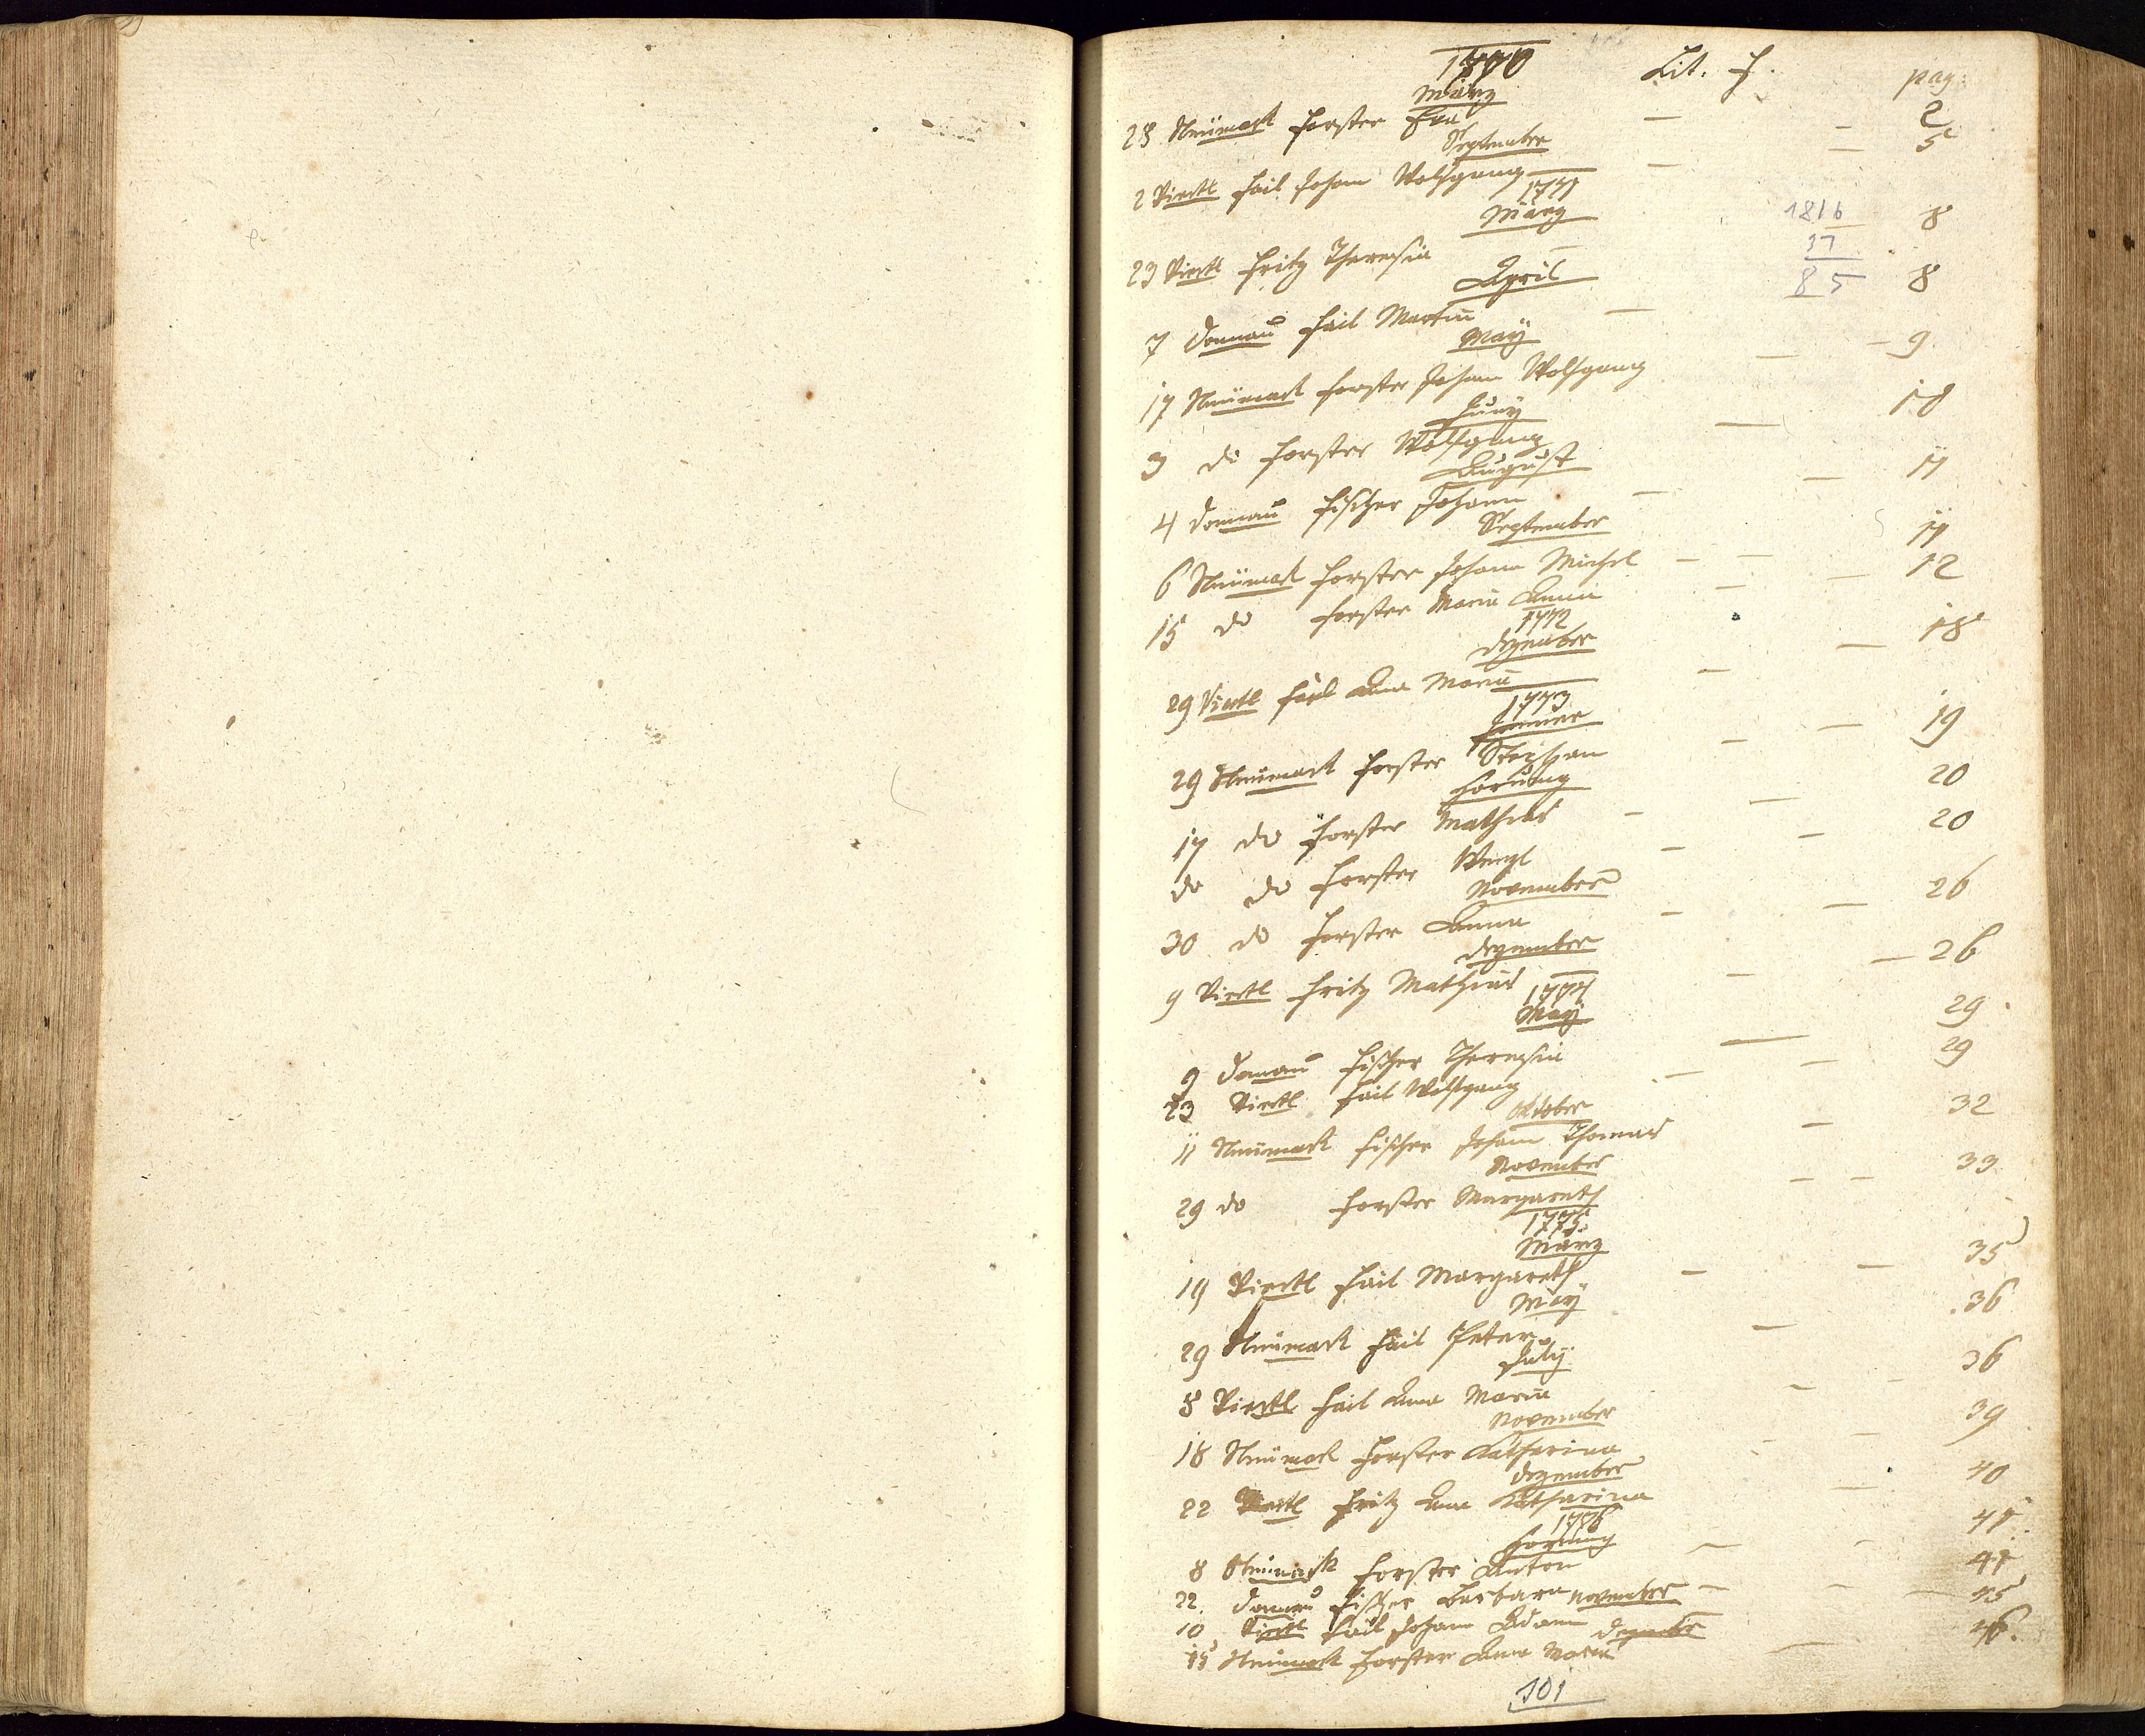 1770 Lit. F. pag:
März
28 Neümark Forster Eva — — 2
September
2 Viertl Fail Johann Wolfgang — — 5
1771
März
1816
23 Viertl Fritz Theresia 8
31
85
April
7 Donnaŭ Fail Martin — 8
Maÿ
17 Neümark Forster Johann Wolfgang — — 9
Junÿ
3 do Forster Wolfgang — 10
Aŭgŭst
4 Donnaŭ Fischer Johann — — 11
September
6 Neümark Forster Johann Michel — — 11
15 do Forster Maria Anna — — 12
1772
Dezember
29 Viertl Fail Anna Maria — — 18
1773
Jenner
29 Neümark Forster Stephan — — 19
Hornŭng
17 do Forster Mathias — — 20
do do Forster Wenzl — — 20
November
30 do Forster Anna — — 26
Dezember
9 Viertl Fritz Mathias — — 26
1774
Maÿ
9 Donnaŭ Fischer Theresia — 29
23 Viertl Fail Wolfgang — — 29
October
11 Neümark Fischer Johann Thomas — 32
November
29 do Forster Margareth — — 33
1775
März
19 Viertl Fail Margareth — — 35
Maÿ
29 Neümark Fail Peter — 36
Julÿ
8 Viertl Fail Anna Maria — — 36
November
18 Neümark Forster Katharina — — 39
Dezember
22 Viertl Fritz Anna Katharina — 40
1776
Hornŭng
8 Neümark Forster Anton — — 41
22. Donnaŭ Fischer Barbara — — 41
November
10 Viertl Fail Johann Adam — 45
Dezember
15 Neümark Forster Anna Maria — 46.
101